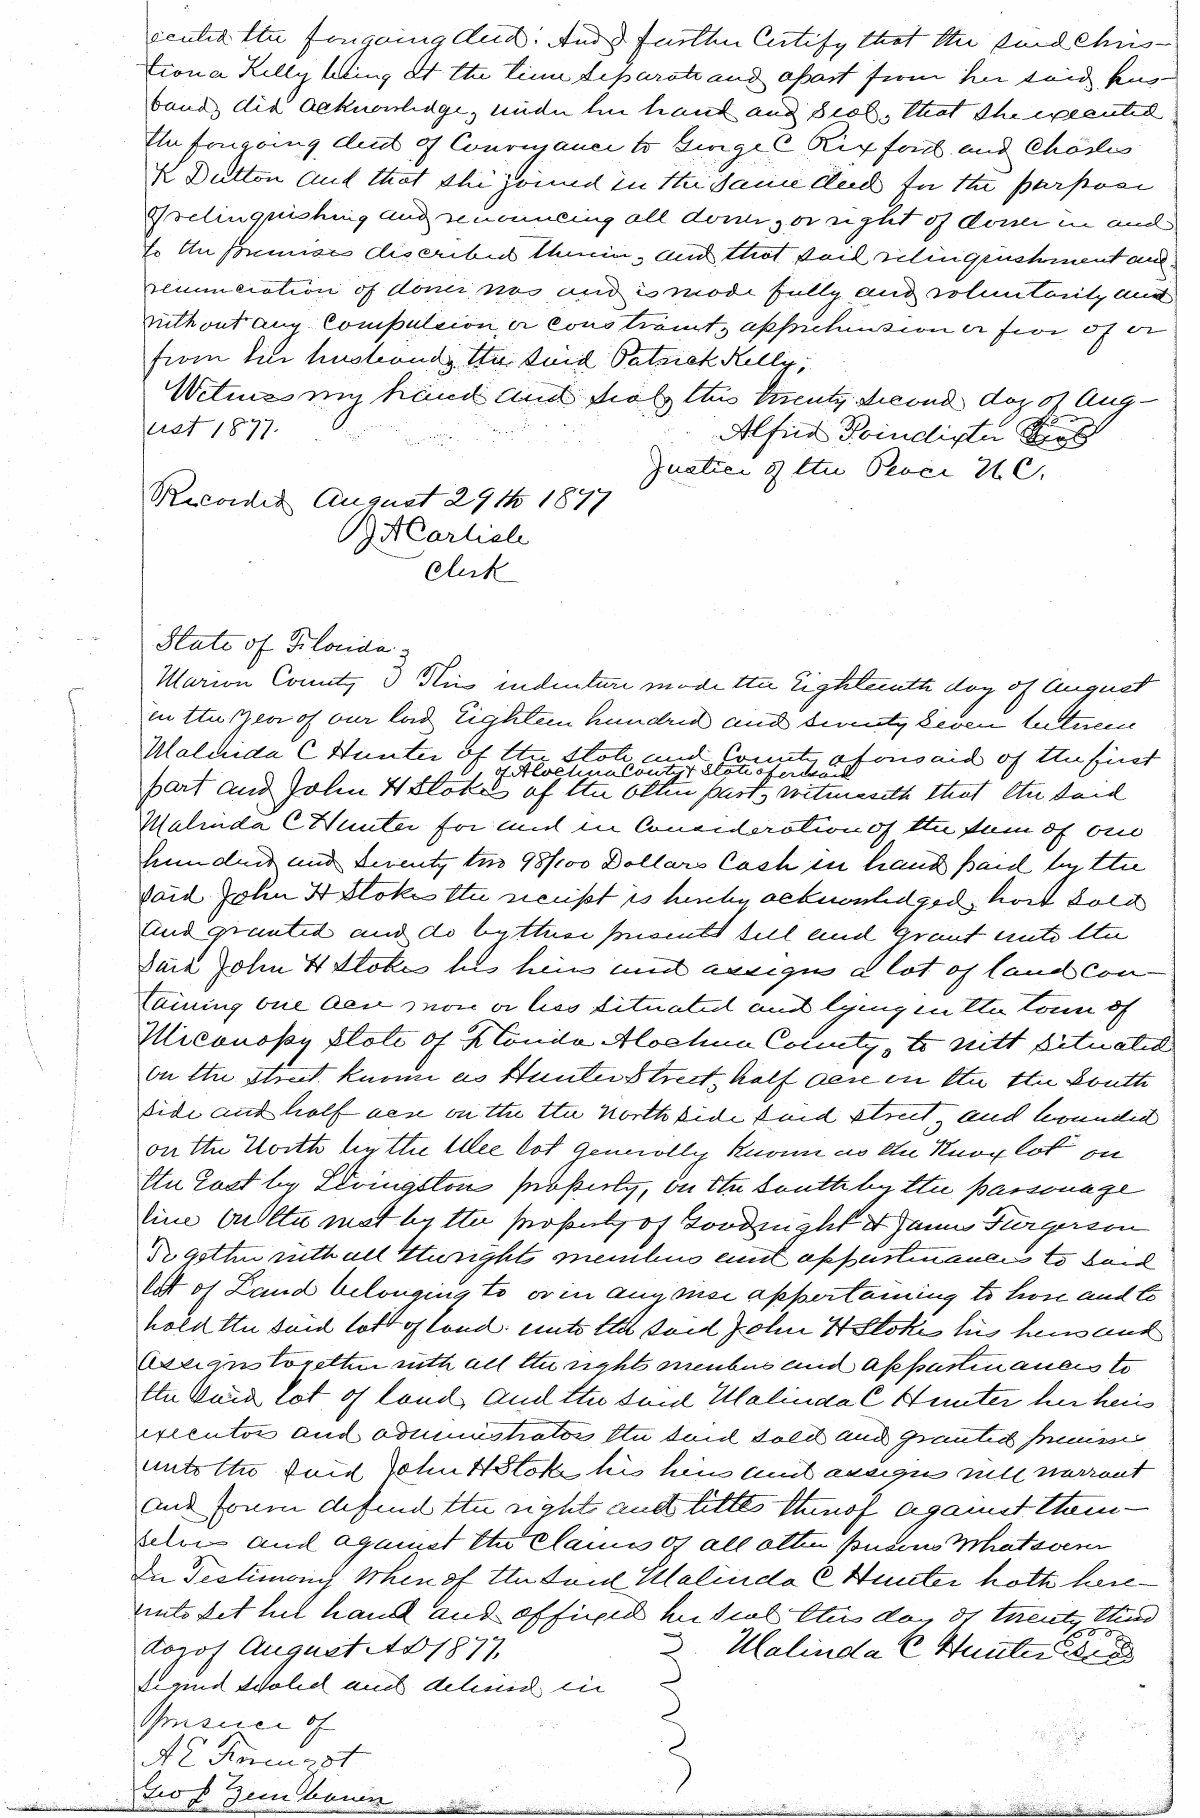 ecuted the foregoing deed: And I further Certify that the said Chris-
tiona Kelly being at the time Separate and apart from her said hus-
band, did acknowledge, under her hand and Seal, that she executed
the foregoing deed of Conveyance to George C Rixford and Charles
K Dutton and that she joined in the same deed for the purpose
of relinquishing and renouncing all dower, or right of dower in and
to the premises discribed therein, and that said relinquishment and
renunciation of dower was and is made fully and voluntarily and
without any Compulsion or constraint, apprehension or fear of or
from her husband, the said Patrick Kelly;
Witness my hand and seal, this twenty second day of Aug-
ust 1877.
Alfred Poindixter Seal
Justice of the Peace
Recorded August 29th 1877
J A Carlisle
Clerk
State of Florida
Marion County } This indenture made the Eighteenth day of August
in the year of our lord Eighteen hundred and seventy Seven between
Malinda C Hunter of the state and County aforesaid of the first
of Alachua County & State aforesaid
part and John H Stokes of the other part, witnesseth that the said
Malinda C Hunter for and in Consideration of the sum of one
hundred and seventy two 98/100 Dollars Cash in hand paid by the
said John H Stokes the receipt is hereby acknowledged, hath sold
and granted and do by these presents sell and grant unto the
said John H Stokes his heirs and assigns a lot of land con-
taining one acre more or less situated and lying in the town of
Micanopy State of Florida Alachua County, to witt situated
on the street known as Hunter Street, half acre on the the South
side and half acre on the the north side said street, and bounded
on the North by the lot generally known as the Knox lot on
the East by Livingstons property, on the south by the parsonage
line on the west by the property of Goodnight & James Furgerson
Together with all the rights members and appurtinances to said
lot of Land belonging to or in any wise appertaining to have and to
hold the said lot of land unto the said John H Stokes his heirs and
assigns together with all the rights members and appurtinances to
the said lot of land, and the said Malinda C Hunter her heirs
executors and administrators the said sold and granted premises
unto the said John H Stokes his heirs and assigns will warrant
and forever defend the rights and titles thereof against them-
selves and against the claims of all other persons whatsoever
In Testimony Whereof the said Malinda C Hunter hath here-
unto set her hand and affixed her seal this day of twenty third
day of August AD 1877.
Malinda C Hunter Seal
signed sealed and delivered in
presence of
A E
Geo